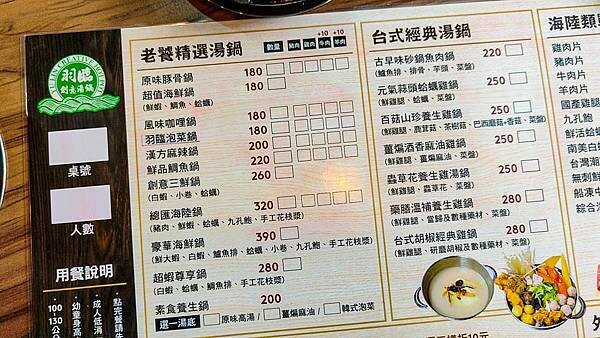 羽臨
創意湯鍋
桌號
人數
用餐說明
老饕精選湯鍋
數量 豬肉 雞肉 +10牛肉 +10羊肉
原味豚骨鍋 180
超值海鮮鍋 180
(鮮蝦、鯛魚、蛤蠣)
風味咖哩鍋 180
羽臨泡菜鍋 180
漢方麻辣鍋 200
鮮品鯛魚鍋 220
創意三鮮鍋 260
(白蝦、小卷、蛤蠣)
總匯海陸鍋 320
(豬肉、鮮蝦、蛤蠣、九孔鮑、手工花枝漿)
豪華海鮮鍋 390
(鮮大蝦、白蝦、鱸魚排、蛤蠣、小卷、九孔鮑、手工花枝漿)
超蝦尊享鍋 280
(白蝦、蛤蠣、鯛魚排、手工花枝漿)
素食養生鍋 200
選一湯底 原味高湯/ 薑麻油/ 韓式泡菜
台式經典湯鍋
古早味砂鍋魚肉鍋 220
(鱸魚排、排骨、芋頭、菜盤)
元氣蒜頭蛤蠣雞鍋 250
(鮮雞腿、蛤蠣、菜盤)
百菇山珍養生雞鍋 250
(鮮雞腿、鹿茸菇、茶樹菇、巴西蘑菇、香菇、菜盤)
薑煸酒香麻油雞鍋 250
(鮮雞腿、薑煸麻油、菜盤)
蟲草花養生雞湯鍋 250
(鮮雞腿、蟲草花、菜盤)
藥膳溫補養生雞鍋 280
(鮮雞腿、當歸及數種藥材、菜盤)
台式胡椒經典雞鍋 280
(鮮雞腿、研磨胡椒及數種藥材、菜盤)
海陸類
雞肉片
豬肉片
牛肉片
羊肉片
國產雞
九孔鮑
鮮活蛤
南美白
台灣潮
無刺
船凍中
綜合
點完餐請先
成人低消
幼童身高
100-130公